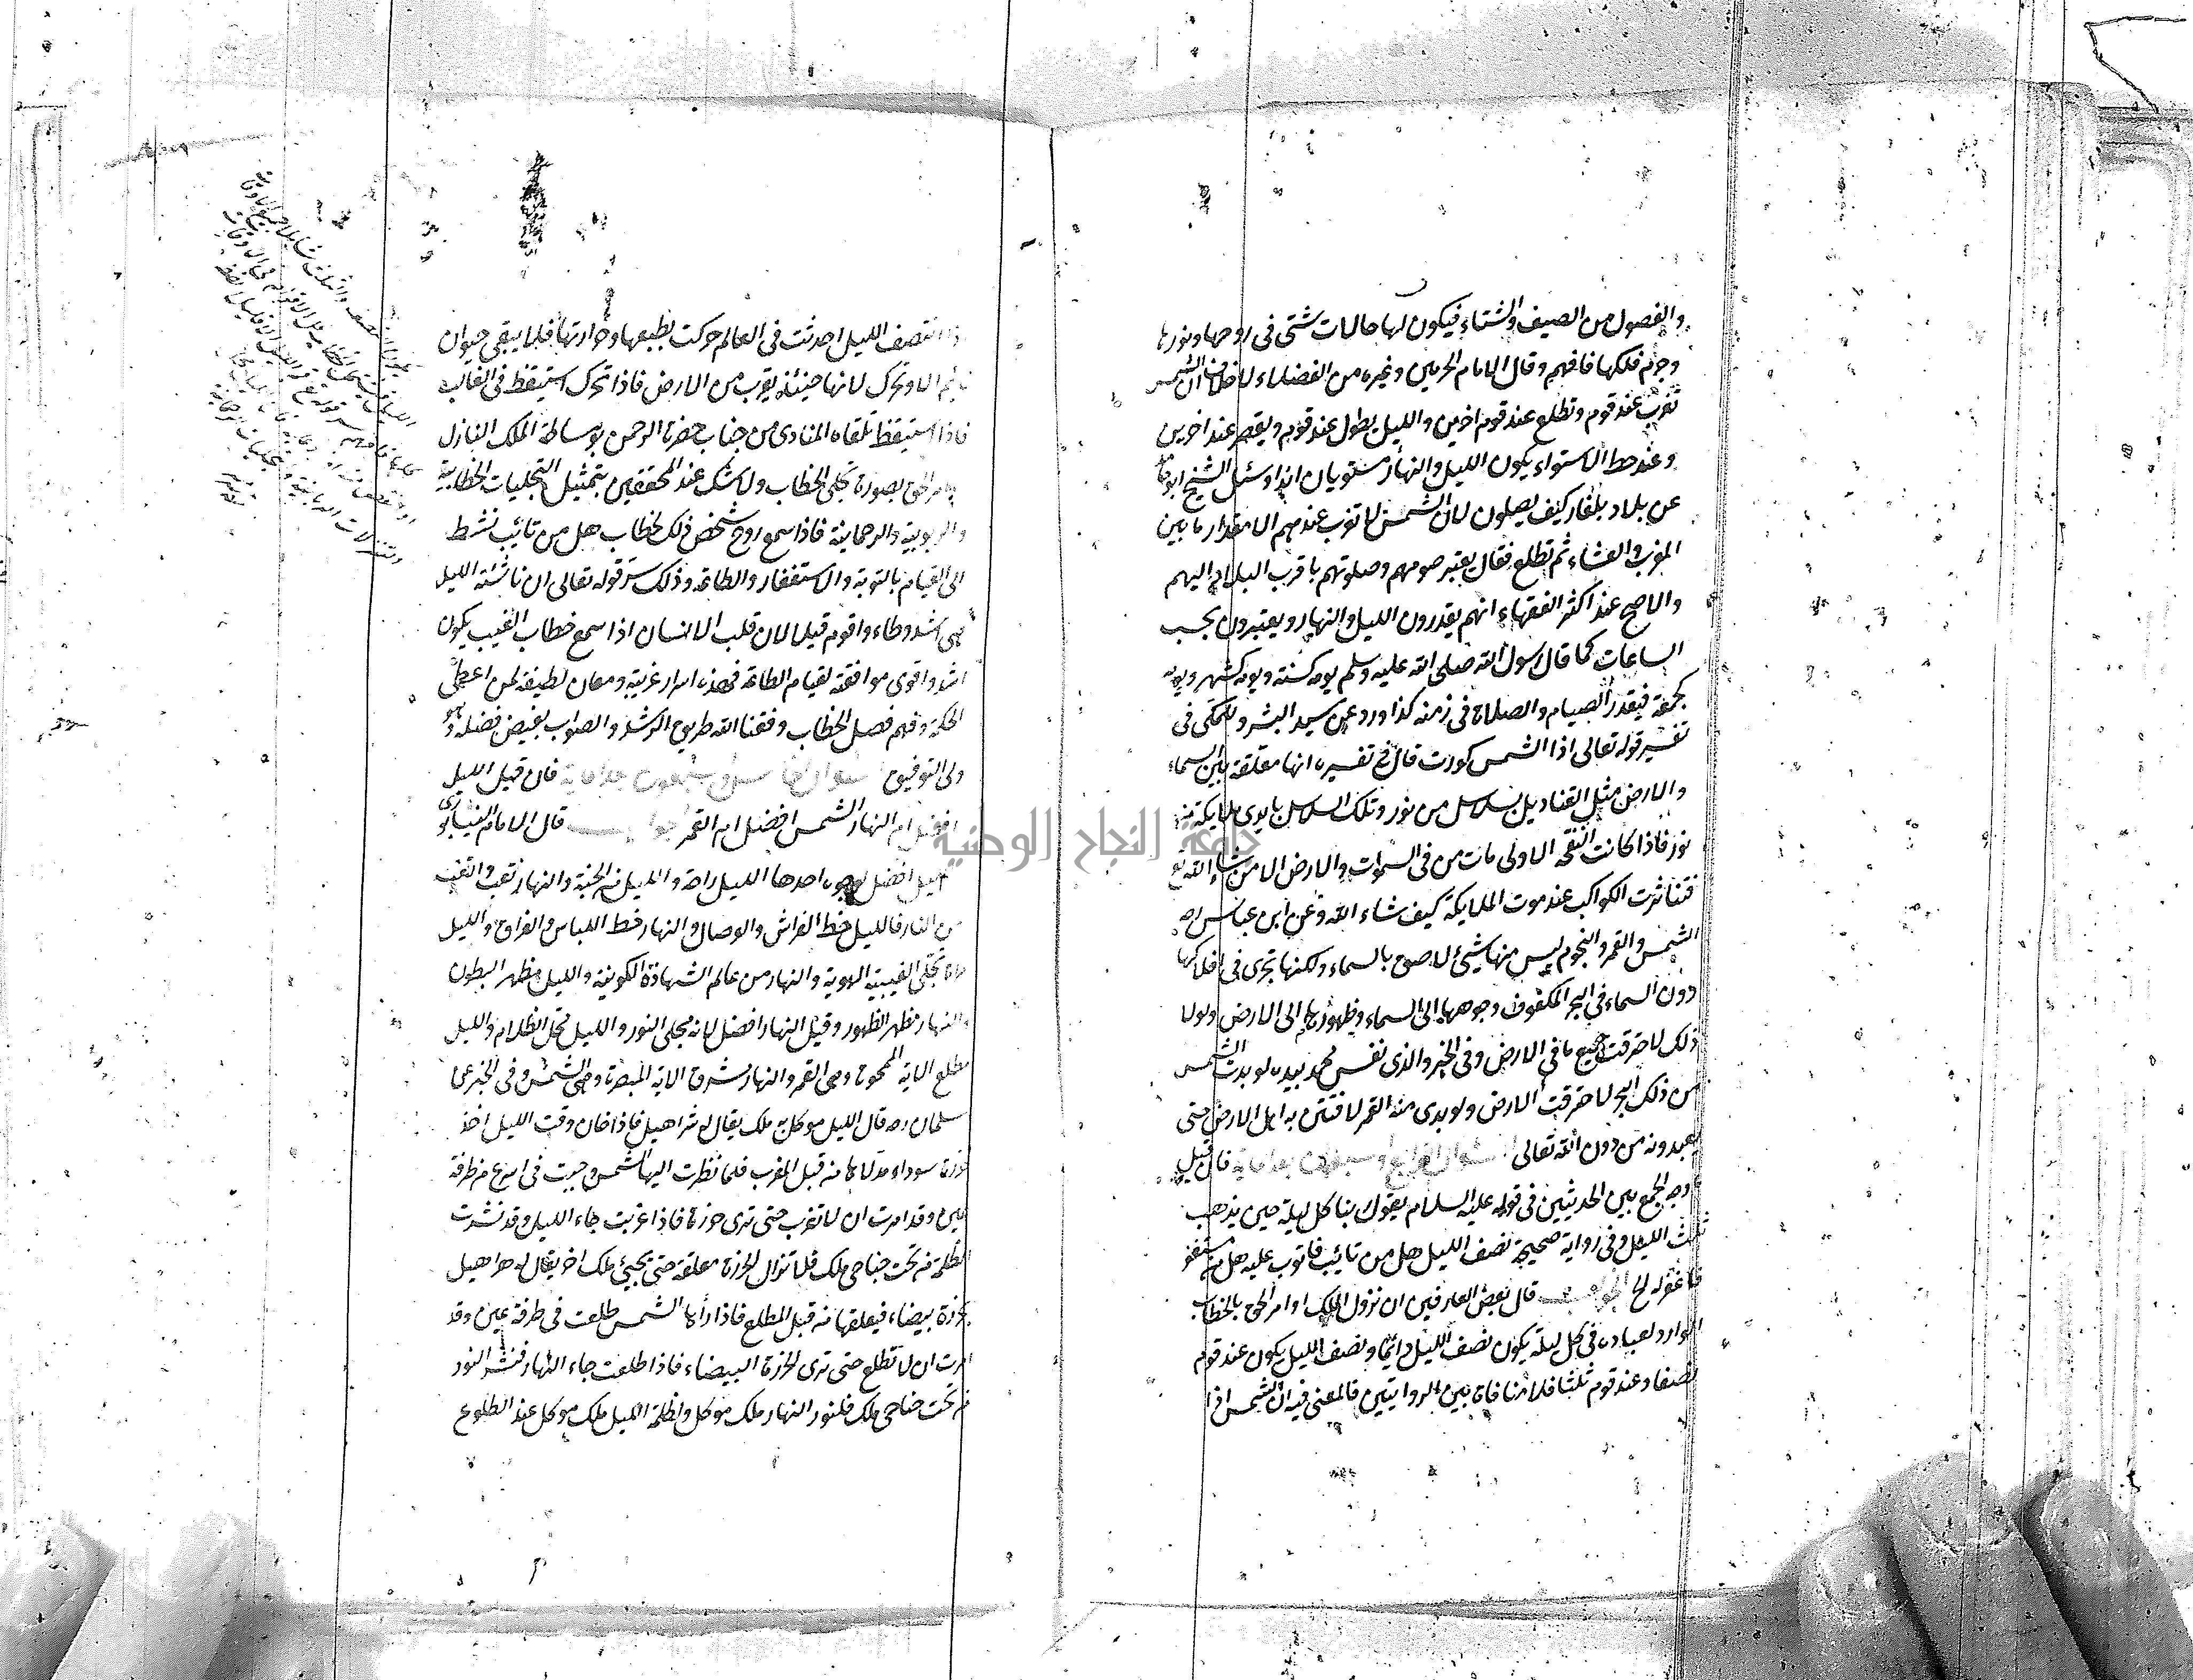 والفصول من الصيف والشتاء فيكون لها حالات شتى في روحها ونورها
وجرم فلكها فافهم وقال الامام الحرمين وغيره من الفضلاء لا خلاف ان الشمس
تغرب عند قوم وتطلع عند قوم اخرين والليل يطول عند قوم ويقصر عند اخرين
وعند خط الاستواء يكون الليل والنهار مستويان ابدا وسئل الشيخ ابو حامد
عن بلاد بلغار كيف يصلون لان الشمس لا تغرب عندهم الا مقدار ما بين
المغرب والعشاء ثم تطلع فقال يعتبر صومهم وصلوتهم باقرب البلاد اليهم
والاصح عند اكثر الفقهاء انهم يقدرون الليل والنهار ويعتبرون بحسب
الساعات كما قال رسول الله صلى الله عليه وسلم يوم كسنة ويوم كشهر ويوم
كجمعة فيقدر الصيام والصلاة في زمنه كذا ورد عن سيد البشر وللمكي في
تفسير قوله تعالى اذا الشمس كورت قال في تفسيره انها معلقة بين السماء
والارض مثل القناديل بسلاسل من نور وتلك السلاسل بايدي ملايكة من
نور فاذا كانت النفخة الاولى مات من في السموات والارض الا من شاء الله تع
فتناثرت الكواكب عند موت الملايكة كيف شاء الله وعن ابن عباس رضه
الشمس والقمر والنجوم ليس منها شيئ لاصق بالسماء ولكنها تجري في افلاكها
دون السماء في البحر المكفوف وجوهها الى السماء وظهورها الى الارض ولولا
ذلك لاحترقت جميع ما في الارض وفي الخبر والذي نفس محمد بيده لو بدت الشمس
من ذلك البحر لاحترقت الارض ولو بدى منه القمر لافتتن به اهل الارض حتى
يعبدونه من دون الله تعالى سؤال الرابع وسبعون بعد ماية فان قيل
ما وجه الجمع بين الحديثين في قوله عليه السلام يقول ربنا كل ليلة حين يذهب
ثلث الليل وفي رواية صحيحة نصف الليل هل من تائب فاتوب عليه هل من مستغفر
فاغفر له الخ الجواب قال بعض العارفين ان نزول الملك اوامر الحق بالخطاب
الوارد لعباده في كل ليلة يكون نصف الليل دائما ونصف الليل يكون عند قوم
نصفا وعند قوم ثلثا فلا منافاة بين الروايتين فالمعنى فيه ان الشمس اذا
انتصف الليل احدثت في العالم حركت بطبعها وحرارتها فلا يبقى حيوان
نائم الا وتحرك لانها حينئذ يقرب من الارض فاذا تحرك استيقظ في الغالب
فاذا استيقظ تلقاه المنادى من جناب حضرة الرحمن بوساطة الملك النازل
بامر الحق بصورة تجلى الخطاب ولا شك عند المحققين بتمثيل التجليات الخطابية
والربوبية والرحمانية فاذا سمع روح شخص ذلك الخطاب هل من تائب نشط
الى القيام بالتوبة والاستغفار والطاعة وذلك سر قوله تعالى ان ناشئة الليل
هي اشد وطاء واقوم قيلا لان قلب الانسان اذا سمع خطاب الغيب يكون
اشد واقوى موافقة لقيام الطاعة فهذه اسرار غريبة ومعان لطيفة لمن اعطى
الحكمة وفهم فصل الخطاب وفقنا الله طريق الرشد والصواب بفيض فضله وهو
ولي التوفيق سؤال الخامس وسبعون بعد ماية فان قيل الليل
افضل ام النهار الشمس افضل ام القمر الجواب قال الامام النيسابوري
الليل افضل لوجوه احدها الليل راحة والليل من الجنة والنهار تعب والتعب
من النار فالليل حظ الفراش والوصال والنهار حظ اللباس والفراق والليل
تجلى الغيبية الهوية والنهار من عالم الشهادة الكونية والليل مظهر البطون
والنهار مظهر الظهور وقيل النهار افضل لانه مجلى النور والليل محل الظلام والليل
مطلع الاية الممحوة وهي القمر والنهار مشرق الاية المبصرة وهي الشمس وفي الخبر عن
سلمان رضه قال الليل موكل به ملك يقال له شراهيل فاذا حان وقت الليل اخذ
خرزة سوداء فدلاها من قبل المغرب فلما نظرت اليها الشمس وجبت في اسرع من طرفة
عين وقد امرت ان لا تغرب حتى ترى خرزة فاذا غربت جاء الليل وقد نشرت
الظلمة من تحت جناحي ملك فلا تزال الخرزة معلقة حتى يجيئ ملك اخر يقال له هراهيل
بخرزة بيضاء فيعلقها من قبل المطلع فاذا راها الشمس طلعت في طرفة عين وقد
امرت ان لا تطلع حتى ترى الخرزة البيضاء فاذا طلعت جاء النهار فنشر النور
من تحت جناحي ملك فلنور النهار ملك موكل ولظلمة الليل ملك موكل عند الطلوع
جامعة النجاح الوطنية